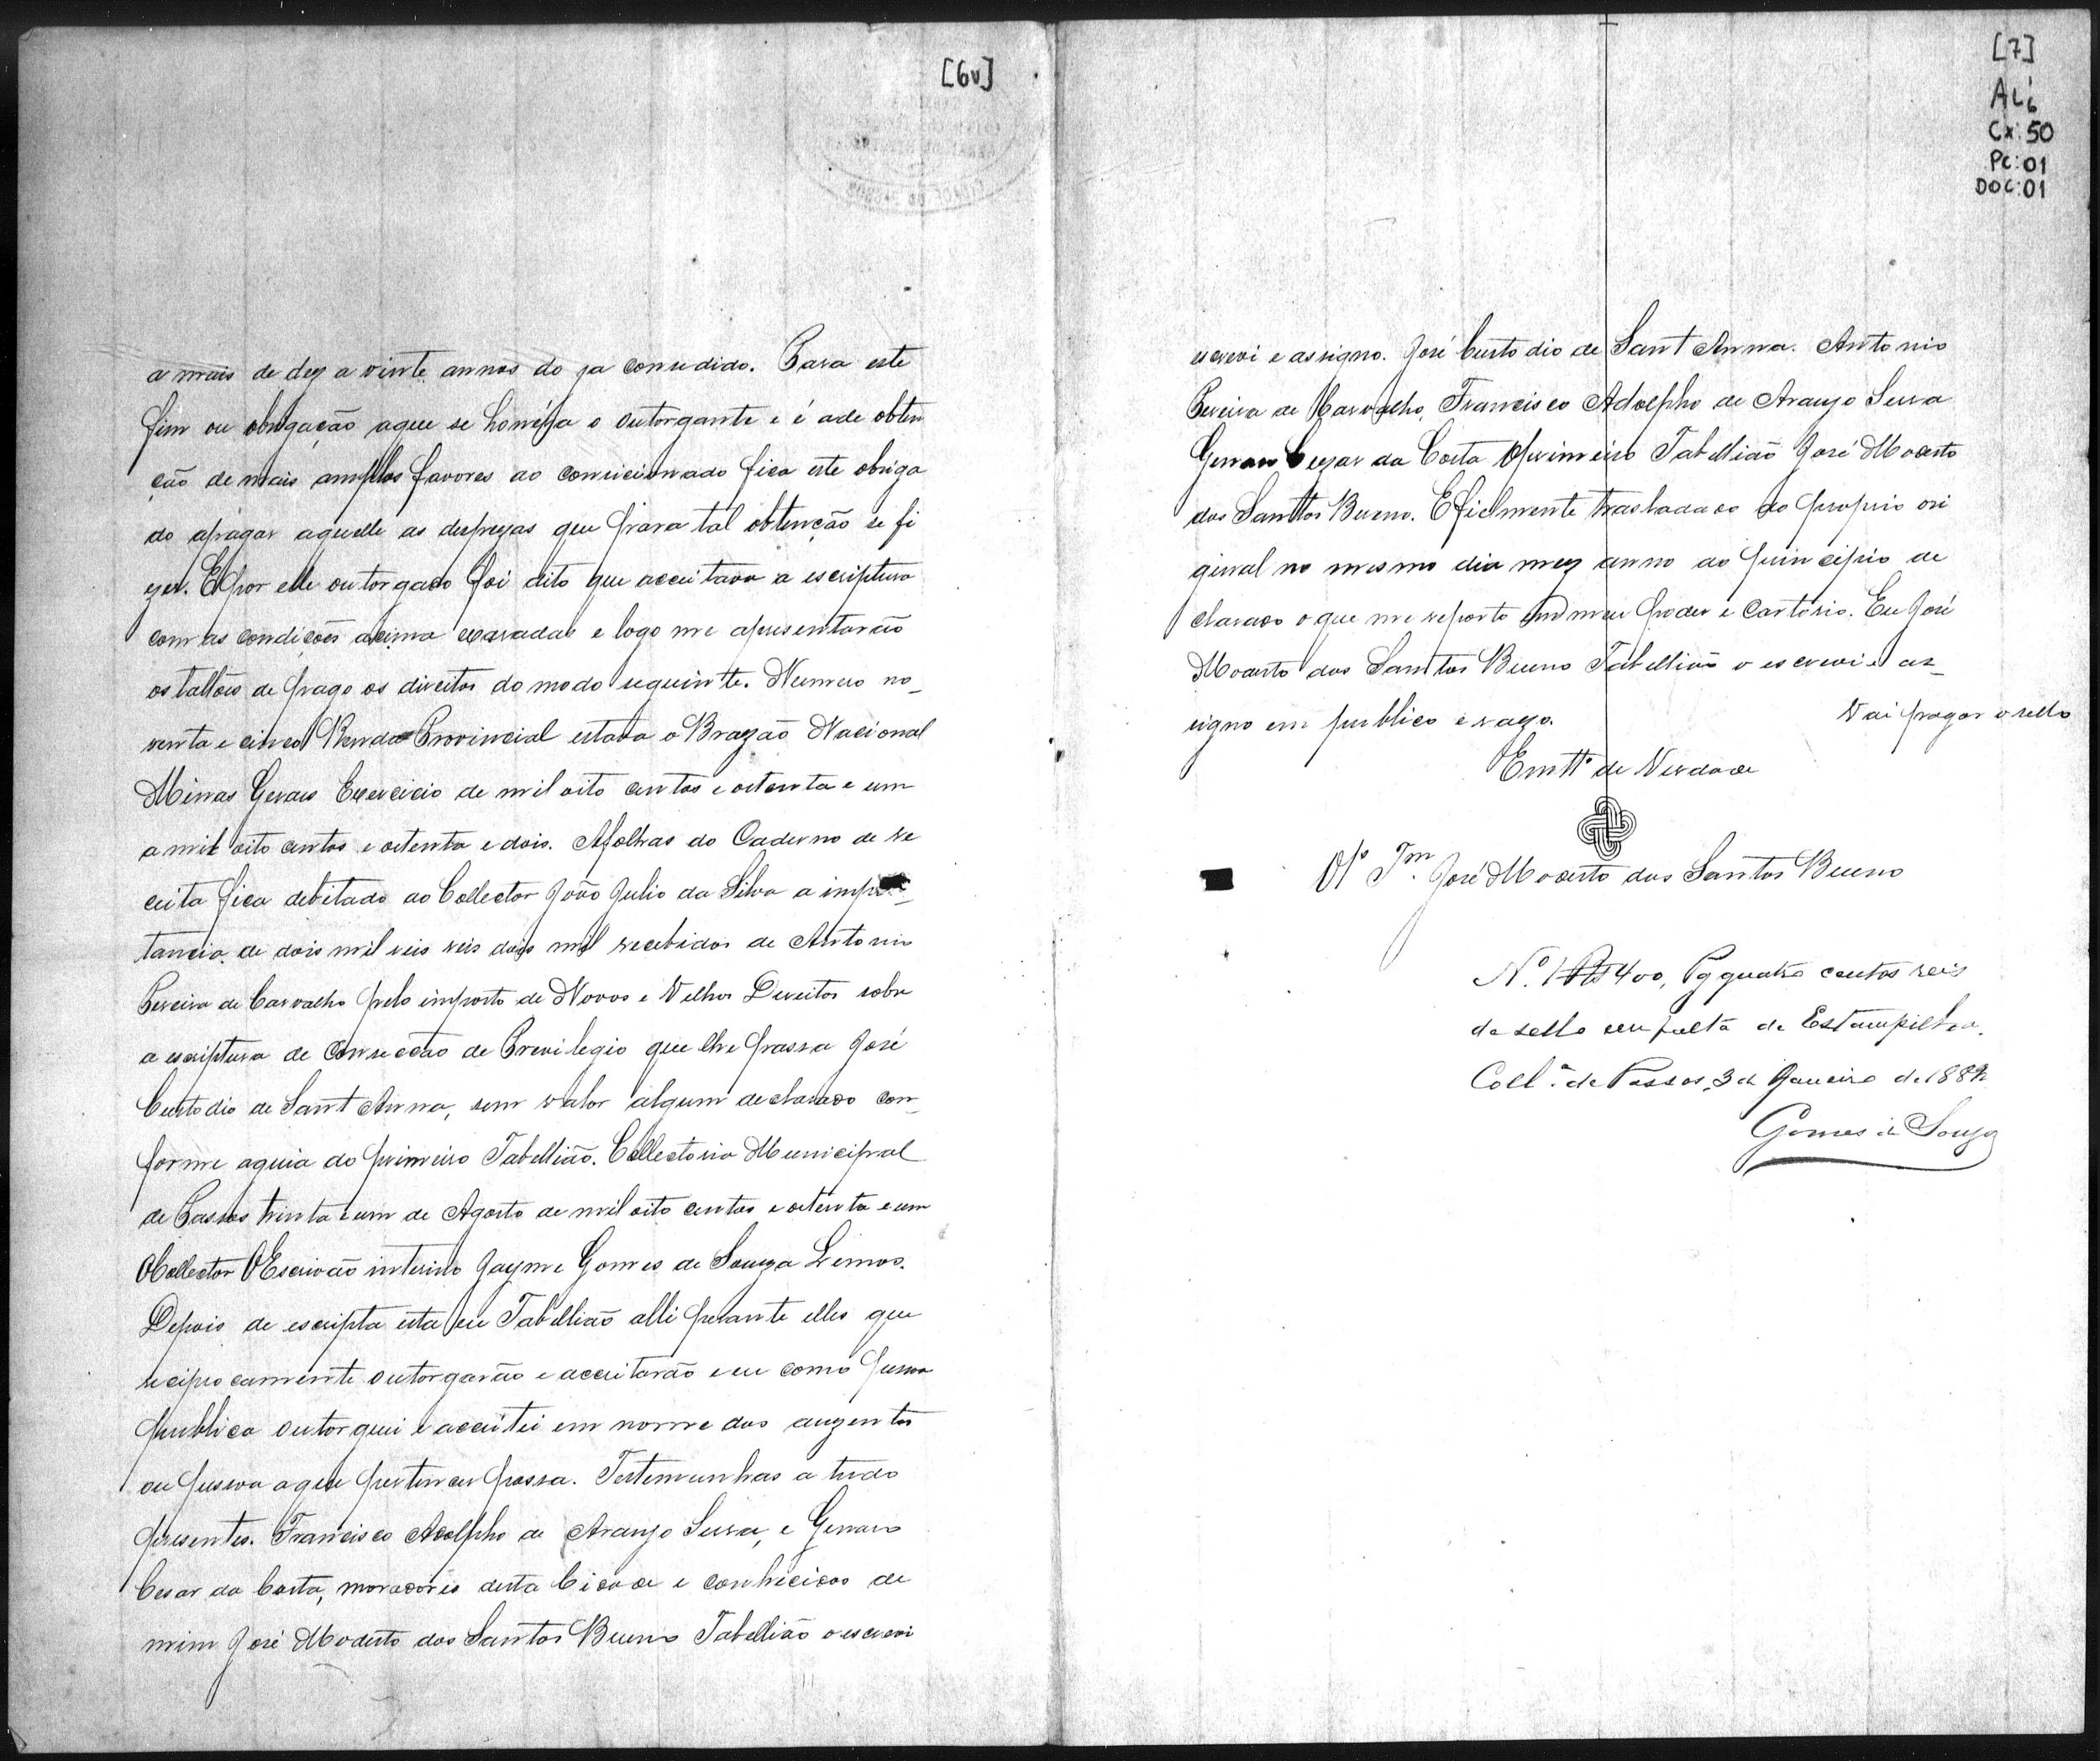 [6v]
a mais de dez a vinte annos do ja concedido. Para este
fim ou obrigação aque se homéza o outorgante e é ade obten
ção de mais amplos favores ao concicionado fica este obriga
do apagar aquelle as despezas que para tal obtenção se fi
zer. E por elle outorgado foi dito que acceitava a escriptura
com as condições acima exaradas e logo me apresentarão
os talões de pago os direitos do modo seguinte. Numero no_
venta e cinco Renda Provincial estava o Brazão Nacional
Minas Geraes Exercicio de mil oito centos e oitenta e um
a mil oito centos e oitenta e dois. Afolhas do Caderno de re
ceita fica debitado ao Collector João Julio da Silva a impor_
tancia de dois mil reis reis dois mil recebidos de Antonio
Pereira de Carvalho pelo imposto de Novos e Velhos Direitos sobre
a escriptura de Concecção de Previlegio que lhe passa José
Custodio de Sant Anna, sem valor algum declarado con_
forme aguia do primeiro Tabellião. Collectoria Municipal
de Passos trinta e um de Agosto de mil oito centos e oitenta e um
O Collector O Escrivão interino Jayme Gomes de Souza Lemos.
Depois de escripta esta eu Tabellião alli perante elles que
reciprocamente outorgarão e acceitarão e eu como pessoa
publica outorguei e acceitei em nome dos auzentes
ou pessoa aque pertencer possa. Testemunhas a tudo
presentes. Francisco Adolpho de Araujo Serra, e Genaro
Cesar da Costa, moradores desta Cidade e conhecidos de
mim José Modesto dos Santos Bueno Tabellião o escrevi
[7]
AL6
Cx: 50
Pc: 01
DOC: 01
escrevi e assigno. José Custodio de Sant Anna. Antonio
Pereira de Carvalho, Francisco Adolpho de Araujo Serra
Genaro Cezar da Costa O primeiro Tabellião José Modesto
dos Santos Bueno. E fielmente trasladado do proprio ori
ginal no mesmo dia mez anno ao principio de
clarado o que me reporto em meu poder e Cartorio. Eu José
Modesto dos Santos Bueno Tabellião o escrevi e as_
signo em publico e razo.
Vai pagar o sello
Em ttº de Verdade
José Modesto dos Santos Bueno
Nº. 1 400, Pg quatro centos reis
de sello em falta de Estampilha.
Collª. de Passos, 3 de Janeiro de 1882
Gomes de Souza